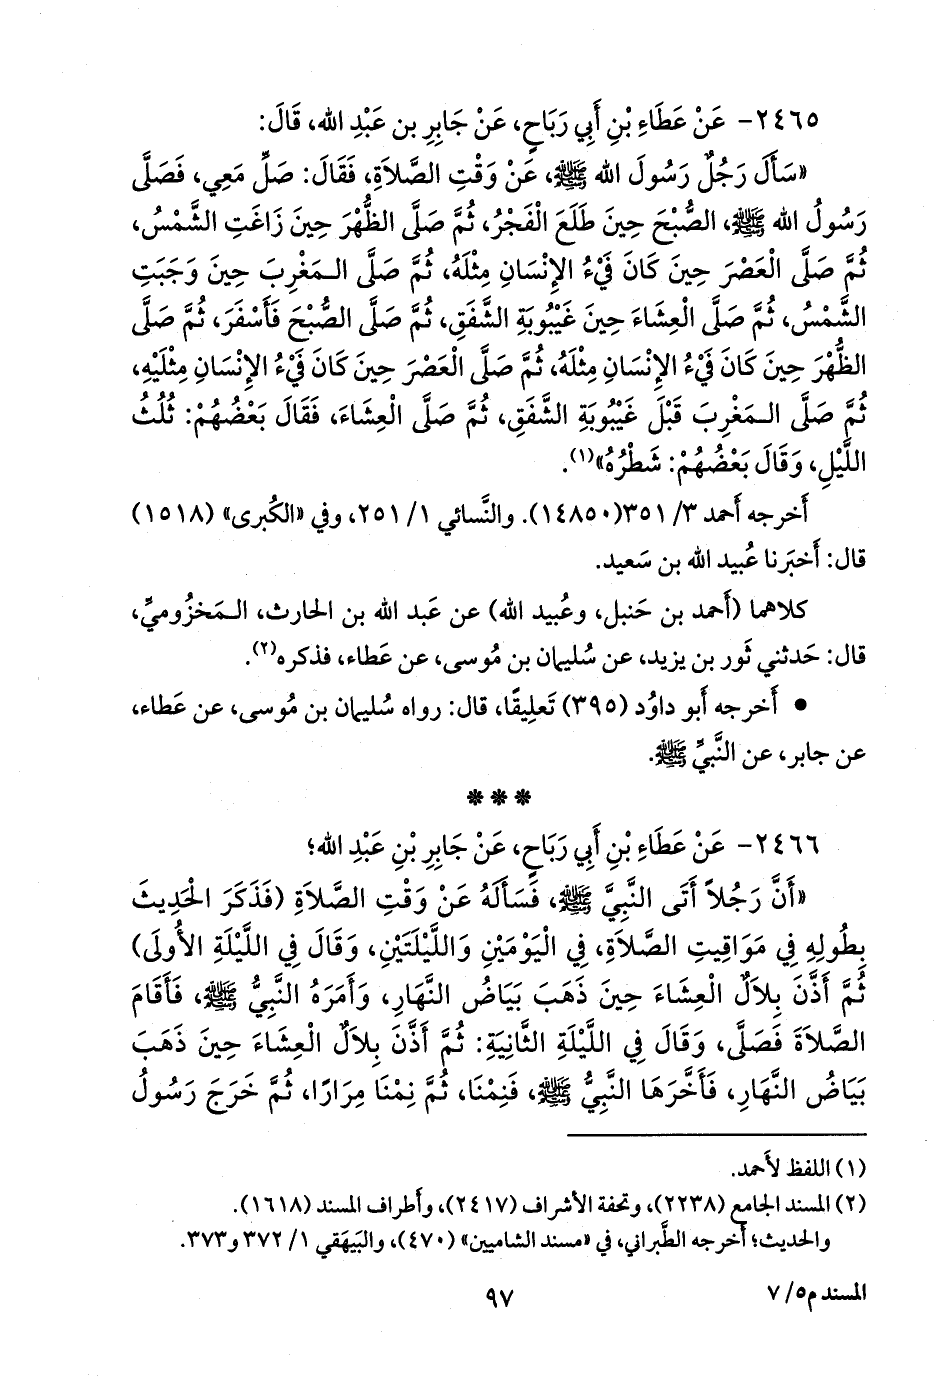 ٢٤٦٥- عَنْ عَطَاءِ بْنِ أَبِي رَبَاحٍ، عَنْ جَابِرِ بن عَبْدِ الله، قَالَ:
«سَأَلَ رَجُلٌ رَسُولَ الله ﷺ، عَنْ وَقْتِ الصَّلاَةِ، فَقَالَ: صَلِّ مَعِي، فَصَلَّى
رَسُولُ الله ﷺ، الصُّبْحَ حِينَ طَلَعَ الْفَجْرُ، ثُمَّ صَلَّى الظُّهْرَ حِينَ زَاغَتِ الشَّمْسُ،
ثُمَّ صَلَّى الْعَصْرَ حِينَ كَانَ فَيْءُ الإِنْسَانِ مِثْلَهُ، ثُمَّ صَلَّى الـمَغْرِبَ حِينَ وَجَبَتِ
الشَّمْسُ، ثُمَّ صَلَّى الْعِشَاءَ حِينَ غَيْبُوبَةِ الشَّفَقِ، ثُمَّ صَلَّى الصُّبْحَ فَأَسْفَرَ، ثُمَّ صَلَّى
الظُّهْرَ حِينَ كَانَ فَيْءُ الإِنْسَانِ مِثْلَهُ، ثُمَّ صَلَّى الْعَصْرَ حِينَ كَانَ فَيْءُ الإِنْسَانِ مِثْلَيْهِ،
ثُمَّ صَلَّى الـمَغْرِبَ قَبْلَ غَيْبُوبَةِ الشَّفَقِ، ثُمَّ صَلَّى الْعِشَاءَ، فَقَالَ بَعْضُهُمْ: ثُلُثُ
اللَّيْلِ، وَقَالَ بَعْضُهُمْ: شَطْرُهُ»(١).
أَخرجه أَحمد ٣/ ٣٥١(١٤٨٥٠). والنَّسائي ١/ ٢٥١، وفي «الكُبرى» (١٥١٨)
قال: أَخبَرنا عُبيد الله بن سَعيد.
كلاهما (أَحمد بن حَنبل، وعُبيد الله) عن عَبد الله بن الحارث، الـمَخزُوميِّ،
قال: حَدثني ثَور بن يزيد، عن سُليمان بن مُوسى، عن عَطاء، فذكره(٢).
• أَخرجه أَبو داوُد (٣٩٥) تَعلِيقًا، قال: رواه سُليمان بن مُوسى، عن عَطاء،
عن جابر، عن النَّبيِّ ﷺ.
***
٢٤٦٦- عَنْ عَطَاءِ بْنِ أَبِي رَبَاحٍ، عَنْ جَابِرِ بْنِ عَبْدِ الله؛
«أَنَّ رَجُلاً أَتَى النَّبِيَّ ﷺ، فَسَأَلَهُ عَنْ وَقْتِ الصَّلاَةِ (فَذَكَرَ الْحَدِيثَ
بِطُولِهِ فِي مَوَاقِيتِ الصَّلاَةِ، فِي الْيَوْمَيْنِ وَاللَّيْلَتَيْنِ، وَقَالَ فِي اللَّيْلَةِ الأُولَى)
ثُمَّ أَذَّنَ بِلاَلٌ الْعِشَاءَ حِينَ ذَهَبَ بَيَاضُ النَّهَارِ، وَأَمَرَهُ النَّبِيُّ ﷺ، فَأَقَامَ
الصَّلاَةَ فَصَلَّى، وَقَالَ فِي اللَّيْلَةِ الثَّانِيَةِ: ثُمَّ أَذَّنَ بِلاَلٌ الْعِشَاءَ حِينَ ذَهَبَ
بَيَاضُ النَّهَارِ، فَأَخَّرَهَا النَّبِيُّ ﷺ، فَنِمْنَا، ثُمَّ نِمْنَا مِرَارًا، ثُمَّ خَرَجَ رَسُولُ
(١) اللفظ لأَحمد.
(٢) المسند الجامع (٢٢٣٨)، وتحفة الأشراف (٢٤١٧)، وأطراف المسند (١٦١٨).
والحديث؛ أخرجه الطَّبراني، في «مسند الشاميين» (٤٧٠)، والبَيهَقي ١/ ٣٧٢ و٣٧٣.
المسند م٥/ ٧
٩٧